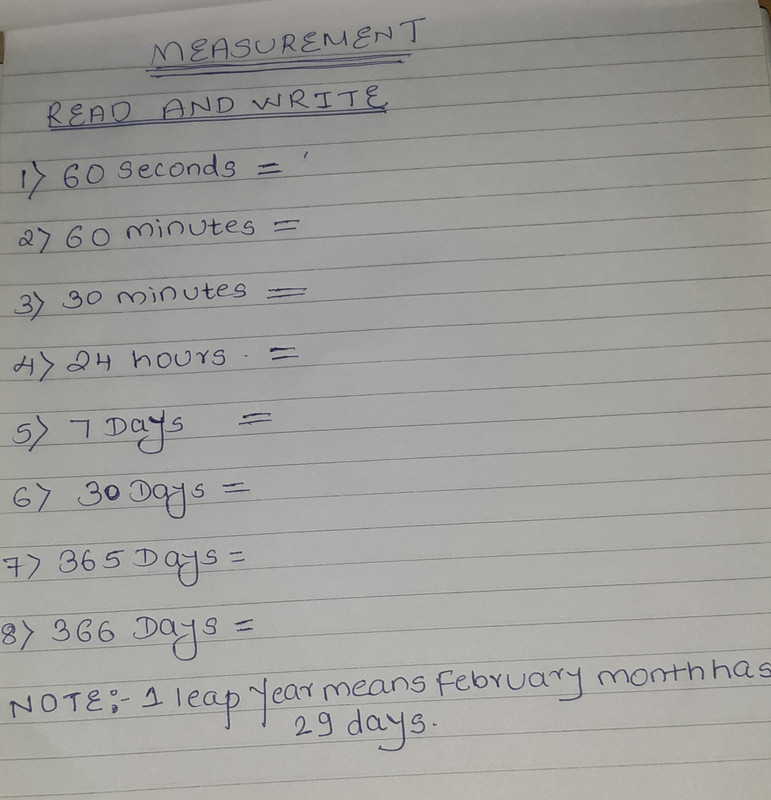 MEASUREMENT
READ AND WRITE
1) 60 seconds =
2) 60 minutes =
3) 30 minutes =
4) 24 hours. =
5) 7 Days =
6) 30 Days =
7) 365 Days =
8) 366 Days =
NOTE:- 1 leap year means February month has
29 days.